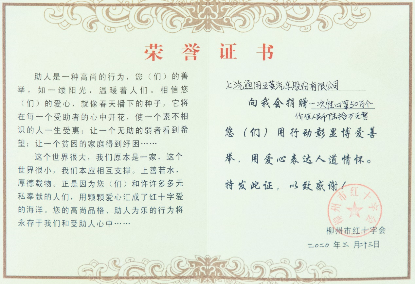 荣誉证书
助人是一种高尚的行为，您（们）的善
举，如一缕阳光，温暖着人们。相信您
（们）的爱心，就像春天播下的种子，它将
在每一个受助者的心中开花，使一个素不相
识的人一生受惠；让一个无助的弱者看到希
望；让一个贫困的家庭得到纾困……
这个世界很大，我们原本是一家，这个
世界很小，我们本应相互支撑。上善若水，
厚德载物。正是因为您（们）和许许多多无
私奉献的人们，用颗颗爱心汇成了红十字爱
的海洋。您的高尚品格、助人为乐的行为将
永存于我们和受助人心中……
上汽通用五菱汽车股份有限公司
向我会捐赠
您（们）用行动彰显博爱善
举，用爱心表达人道情怀。
特发此证，以致感谢！
柳州市红十字会
2020年